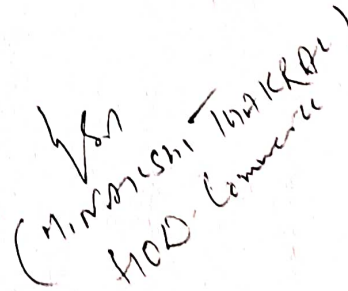 (MINAKSHI THAKRAL)
HOD Commerce